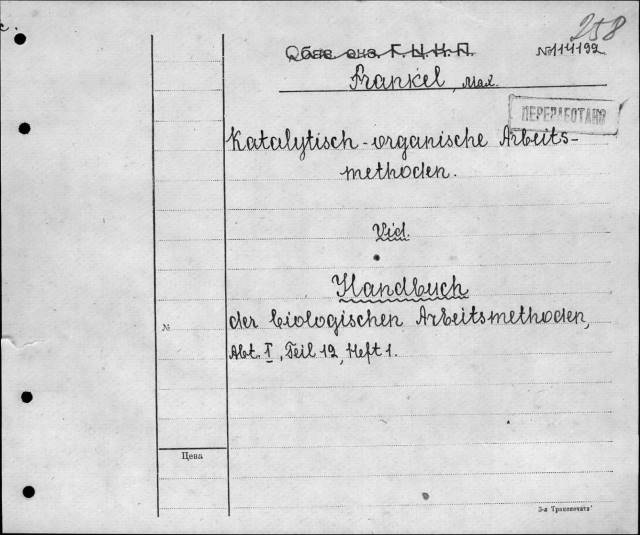 с.
258
Обяз. экз. Г.Ц.К.П.
№114192
Frankel, Max.
ПЕРЕРАБОТАНО
Katalytisch-organische Arbeits-
methoden.
Vid.
Handbuch
der biologischen Arbeitsmethoden,
Abt. I, Teil 12, Heft 1.
№
Цена
3-я Транспечать